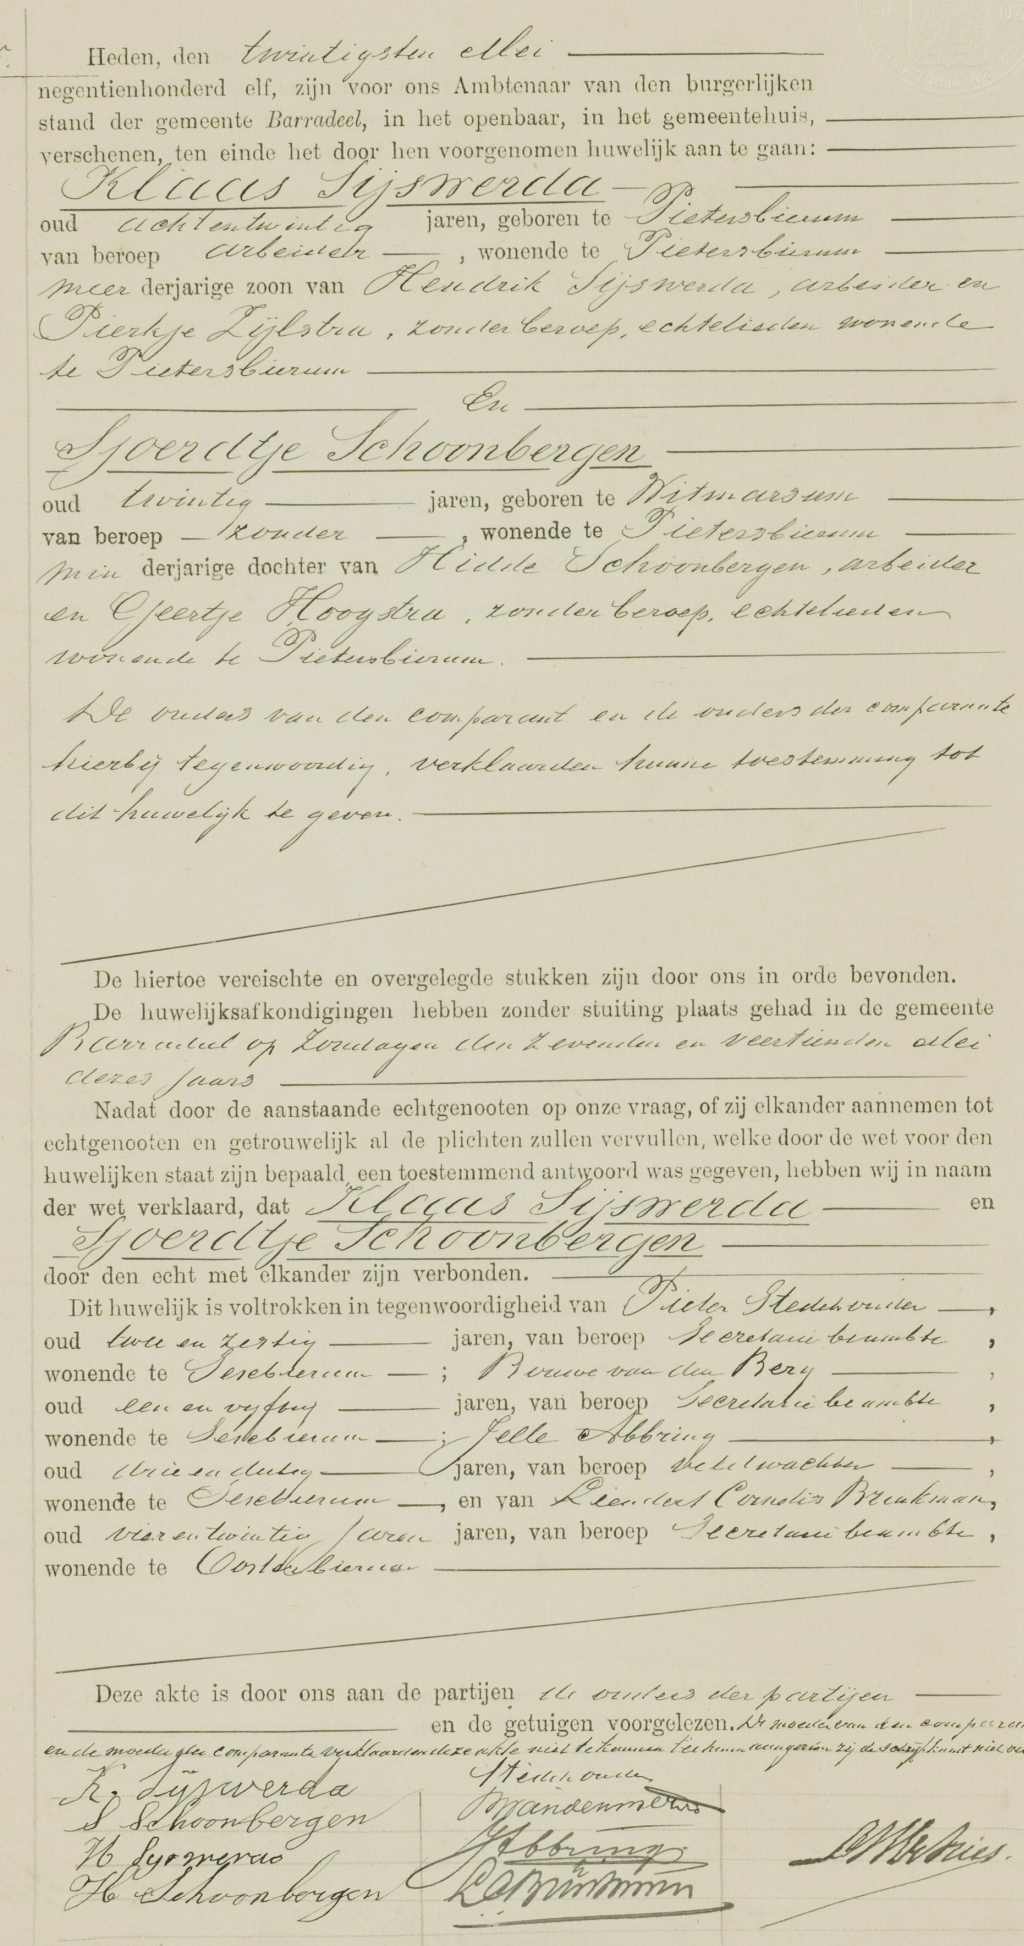 Heden, den twintigsten Mei
negentienhonderd elf, zijn voor ons Ambtenaar van den burgerlijken
stand der gemeente Barradeel, in het openbaar, in het gemeentehuis,
verschenen, ten einde het door hen voorgenomen huwelijk aan te gaan:
Klaas Sijswerda
oud achtentwintig jaren, geboren te Pietersbierum
van beroep arbeider, wonende te Pietersbierum
meer derjarige zoon van Hendrik Sijswerda, arbeider en
Pierkje Zijlstra, zonder beroep, echtelieden wonende
te Pietersbierum
En
Sjoerdtje Schoonbergen
oud twintig jaren, geboren te Witmarsum
van beroep zonder, wonende te Pietersbierum
min derjarige dochter van Hidde Schoonbergen, arbeider
en Geertje Hoogstra, zonder beroep, echtelieden
wonende te Pietersbierum.
De ouders van den comparant en de ouders der comparante
hierbij tegenwoordig, verklaarden hunne toestemming tot
dit huwelijk te geven.
De hiertoe vereischte en overgelegde stukken zijn door ons in orde bevonden.
De huwelijksafkondigingen hebben zonder stuiting plaats gehad in de gemeente
Barradeel op Zondagen den zevenden en veertienden Mei
dezes jaars
Nadat door de aanstaande echtgenooten op onze vraag, of zij elkander aannemen tot
echtgenooten en getrouwelijk al de plichten zullen vervullen, welke door de wet voor den
huwelijken staat zijn bepaald, een toestemmend antwoord was gegeven, hebben wij in naam
der wet verklaard, dat Klaas Sijswerda en
Sjoerdtje Schoonbergen
door den echt met elkander zijn verbonden.
Dit huwelijk is voltrokken in tegenwoordigheid van Pieter Stedehouder,
oud twee en zestig jaren, van beroep Secretarie beambte,
wonende te Sexbierum; Bouwe van den Berg,
oud een en vyftig jaren, van beroep Secretarie beambte,
wonende te Sexbierum; Jelle Abbring,
oud drie en dertig jaren, van beroep veldwachter,
wonende te Sexbierum, en van Leendert Cornelis Brinkman,
oud vier en twintig jaren jaren, van beroep Secretarie beambte,
wonende te Oosterbierum
Deze akte is door ons aan de partijen de ouders der partijen
en de getuigen voorgelezen. De moeder van den
en de moeder der comparante verklaarden deze akte niet te kunnen teekenen aangezien zij de schrijfkunst niet
K. Sijswerda
Stedehouder
S Schoonbergen
H Sijswerda
JAbbring
H Schoonbergen
LCBrinkman